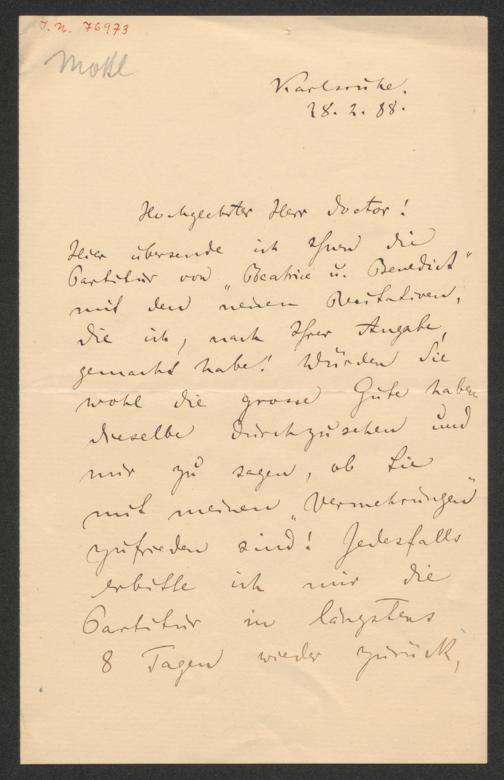 I.N. 76973
Mottl
Karlsruhe.
28. 2. 88.
Hochgeehrter Herr Doctor!
Hier übersende ich Ihnen die
Partitur von „Beatrice u. Benedict"
mit den neuen Recitativen,
die ich, nach Ihrer Angabe,
gemacht habe! Würden Sie
wohl die grosse Güte haben
dieselbe durchzusehen und
mir zu sagen, ob Sie
mit meinen „Vermehrungen"
zufrieden sind! Jedesfalls
erbitte ich mir die
Partitur in längstens
8 Tagen wieder zurück,